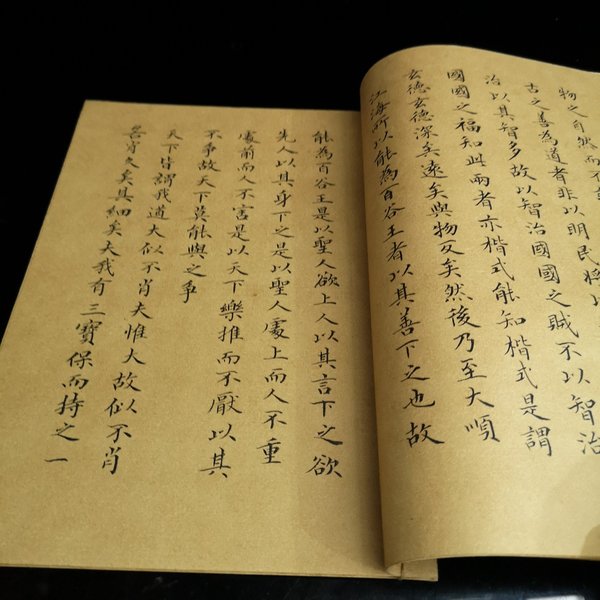 物之自然而不
古之善為道者非以明民將
治以其智多故以智治國國之賊不以智治
國國之福知此兩者亦楷式能知楷式是謂
玄德玄德深矣遠矣與物反矣然後乃至大順
江海所以能為百谷王者以其善下之也故
能為百谷王是以聖人欲上人以其言下之欲
先人以其身下之是以聖人處上而人不重
處前而人不害是以天下樂推而不厭以其
不爭故天下莫能與之爭
天下皆謂我道大似不肖夫惟大故似不肖
若肖久矣其細矣夫我有三寶保而持之一